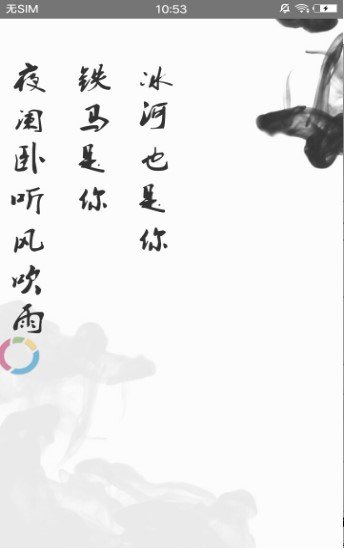 无SIM
10:53
夜阑卧听风吹雨
铁马是你
冰河也是你